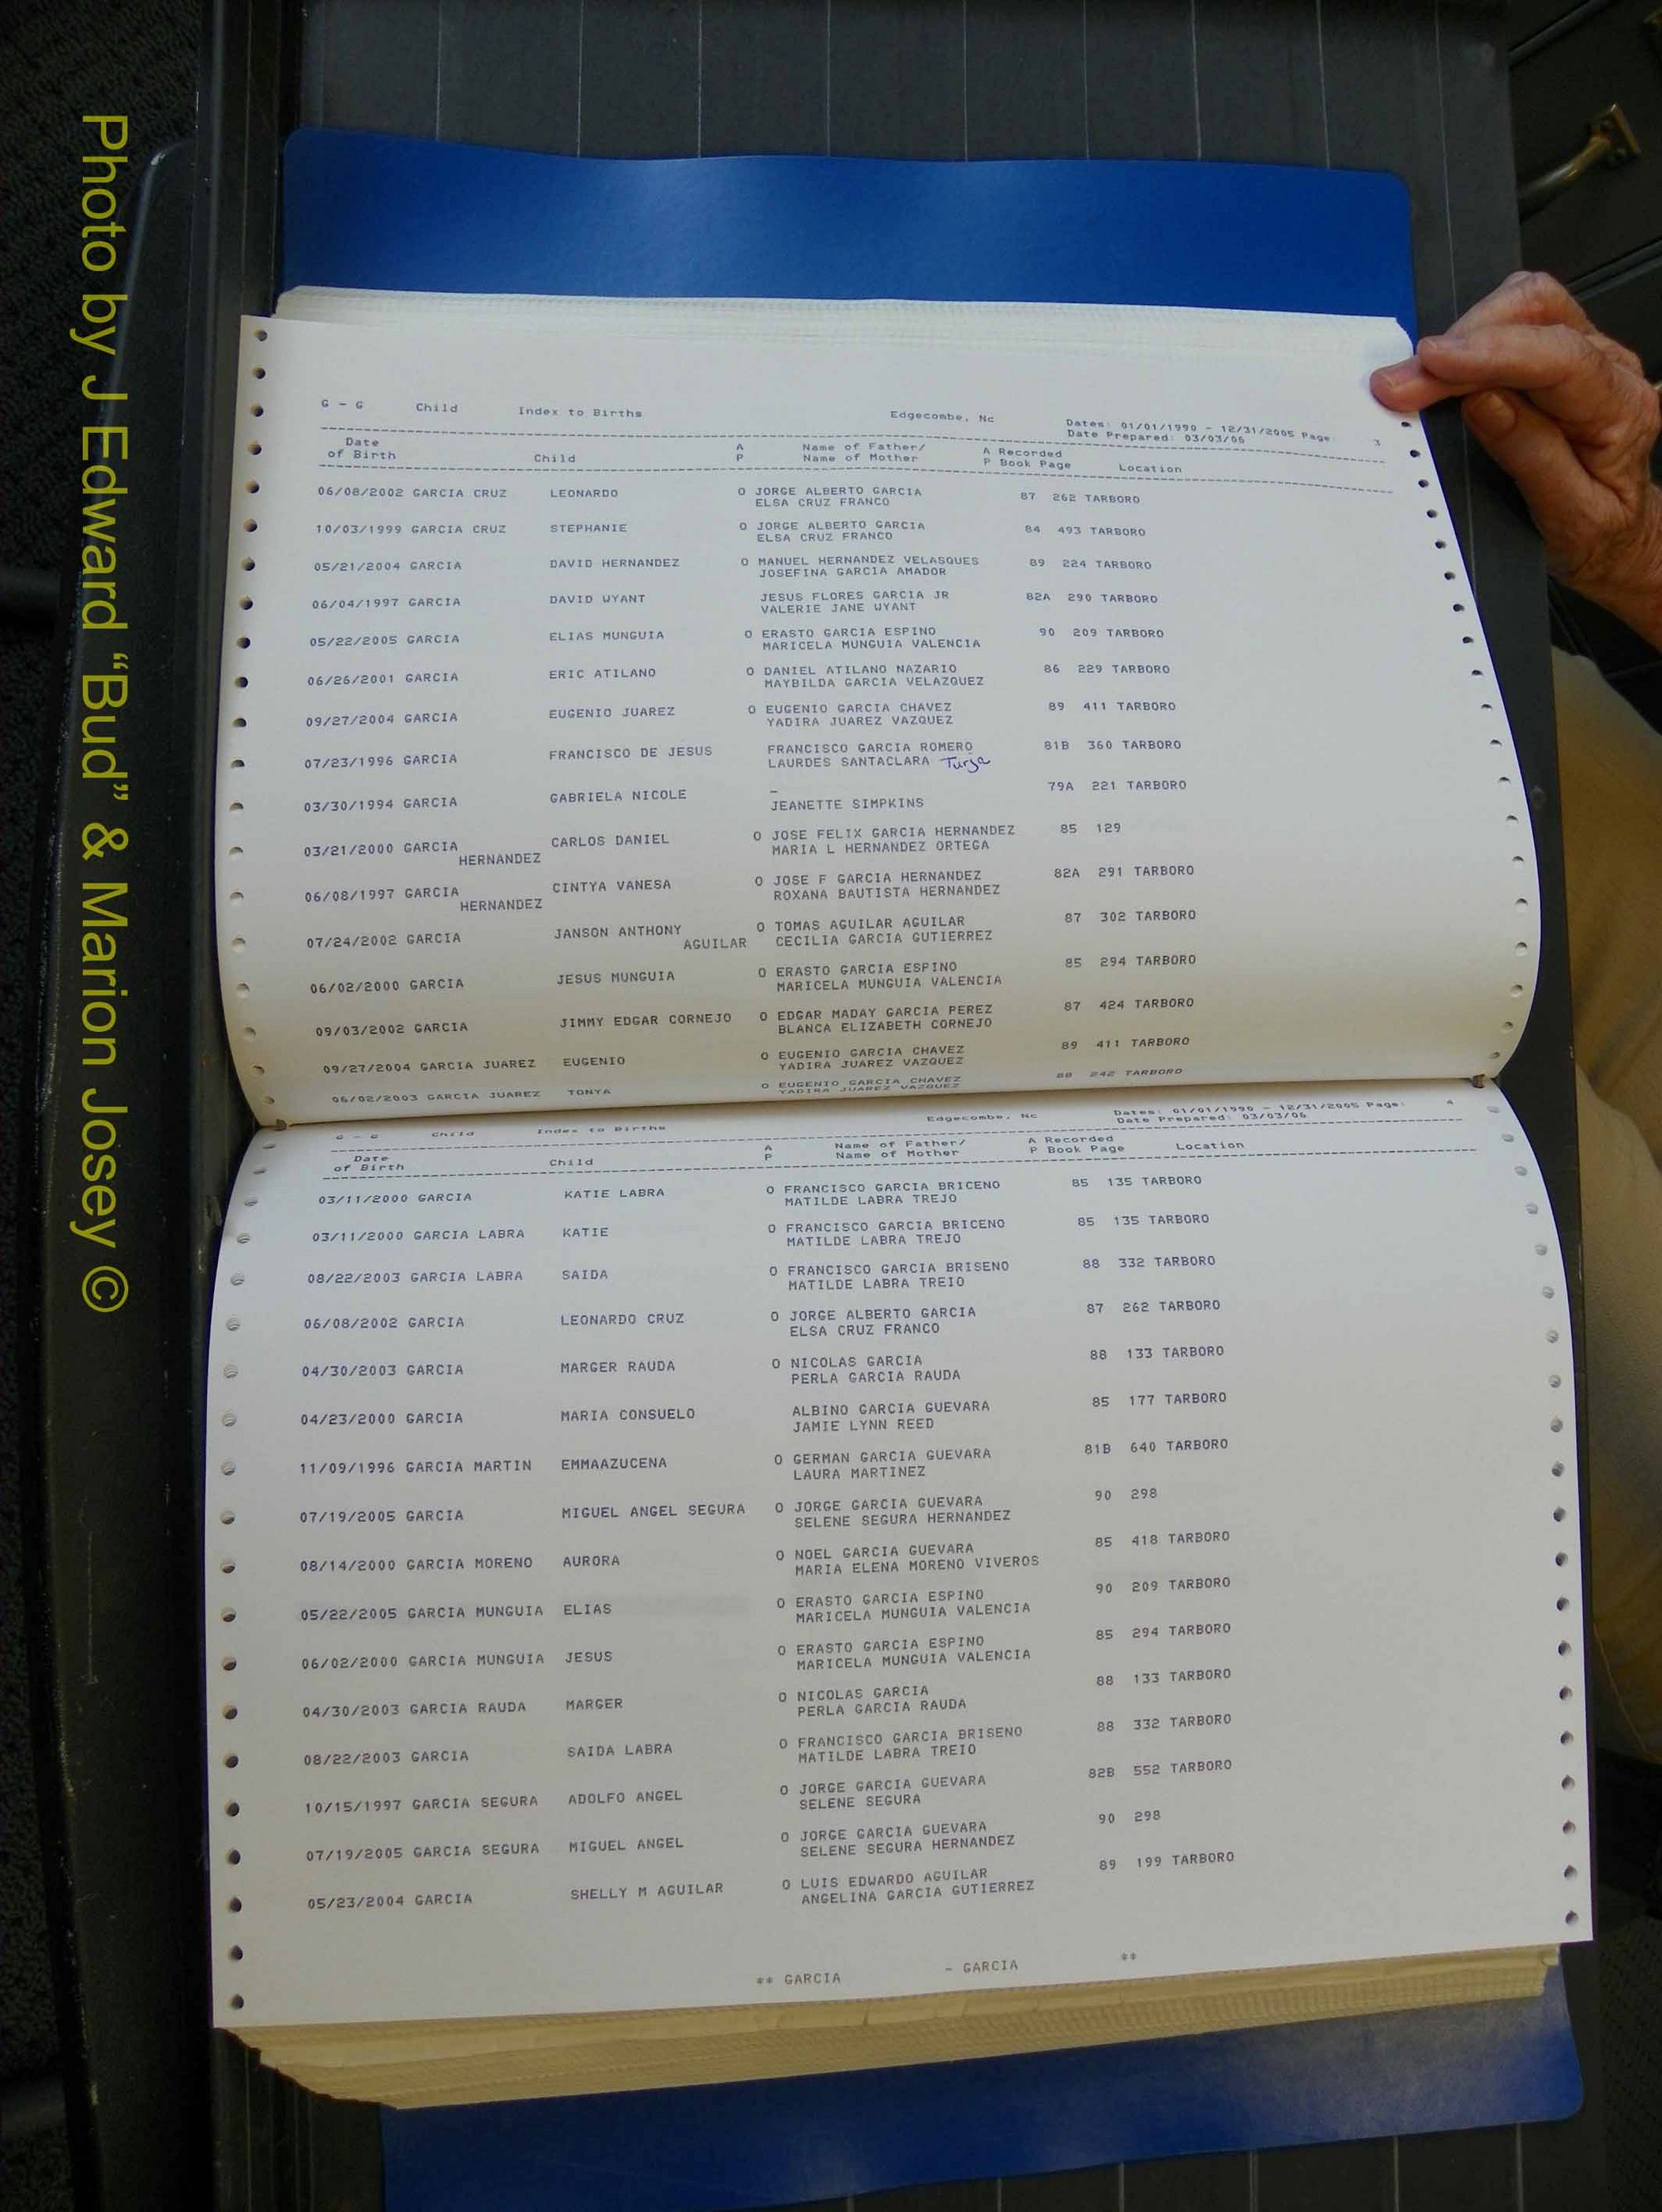 G - G Child Index to Births Edgecombe, Nc Dates: 01/01/1990 - 12/31/2005 Page: 3
Date Prepared: 03/03/06
Date A Name of Father/ A Recorded
of Birth Child P Name of Mother P Book Page Location
06/08/2002 GARCIA CRUZ LEONARDO O JORGE ALBERTO GARCIA 87 262 TARBORO
ELSA CRUZ FRANCO
10/03/1999 GARCIA CRUZ STEPHANIE O JORGE ALBERTO GARCIA 84 493 TARBORO
ELSA CRUZ FRANCO
05/21/2004 GARCIA DAVID HERNANDEZ O MANUEL HERNANDEZ VELASQUES 89 224 TARBORO
JOSEFINA GARCIA AMADOR
06/04/1997 GARCIA DAVID WYANT JESUS FLORES GARCIA JR 82A 290 TARBORO
VALERIE JANE WYANT
05/22/2005 GARCIA ELIAS MUNGUIA O ERASTO GARCIA ESPINO 90 209 TARBORO
MARICELA MUNGUIA VALENCIA
06/26/2001 GARCIA ERIC ATILANO O DANIEL ATILANO NAZARIO 86 229 TARBORO
MAYBILDA GARCIA VELAZQUEZ
09/27/2004 GARCIA EUGENIO JUAREZ O EUGENIO GARCIA CHAVEZ 89 411 TARBORO
YADIRA JUAREZ VAZQUEZ
07/23/1996 GARCIA FRANCISCO DE JESUS FRANCISCO GARCIA ROMERO 81B 360 TARBORO
LAURDES SANTACLARA
03/30/1994 GARCIA GABRIELA NICOLE - 79A 221 TARBORO
JEANETTE SIMPKINS
03/21/2000 GARCIA CARLOS DANIEL O JOSE FELIX GARCIA HERNANDEZ 85 129
HERNANDEZ MARIA L HERNANDEZ ORTEGA
06/08/1997 GARCIA CINTYA VANESA O JOSE F GARCIA HERNANDEZ 82A 291 TARBORO
HERNANDEZ ROXANA BAUTISTA HERNANDEZ
07/24/2002 GARCIA JANSON ANTHONY O TOMAS AGUILAR AGUILAR 87 302 TARBORO
AGUILAR CECILIA GARCIA GUTIERREZ
06/02/2000 GARCIA JESUS MUNGUIA O ERASTO GARCIA ESPINO 85 294 TARBORO
MARICELA MUNGUIA VALENCIA
09/03/2002 GARCIA JIMMY EDGAR CORNEJO O EDGAR MADAY GARCIA PEREZ 87 424 TARBORO
BLANCA ELIZABETH CORNEJO
09/27/2004 GARCIA JUAREZ EUGENIO O EUGENIO GARCIA CHAVEZ 89 411 TARBORO
YADIRA JUAREZ VAZQUEZ
06/02/2003 GARCIA JUAREZ TONYA O EUGENIO GARCIA CHAVEZ 88 242 TARBORO
YADIRA JUAREZ VAZQUEZ
G - G Child Index to Births Edgecombe, Nc Dates: 01/01/1990 - 12/31/2005 Page: 4
Date Prepared: 03/03/06
Date A Name of Father/ A Recorded
of Birth Child P Name of Mother P Book Page Location
03/11/2000 GARCIA KATIE LABRA O FRANCISCO GARCIA BRICENO 85 135 TARBORO
MATILDE LABRA TREJO
03/11/2000 GARCIA LABRA KATIE O FRANCISCO GARCIA BRICENO 85 135 TARBORO
MATILDE LABRA TREJO
08/22/2003 GARCIA LABRA SAIDA O FRANCISCO GARCIA BRISENO 88 332 TARBORO
MATILDE LABRA TREIO
06/08/2002 GARCIA LEONARDO CRUZ O JORGE ALBERTO GARCIA 87 262 TARBORO
ELSA CRUZ FRANCO
04/30/2003 GARCIA MARGER RAUDA O NICOLAS GARCIA 88 133 TARBORO
PERLA GARCIA RAUDA
04/23/2000 GARCIA MARIA CONSUELO ALBINO GARCIA GUEVARA 85 177 TARBORO
JAMIE LYNN REED
11/09/1996 GARCIA MARTIN EMMAAZUCENA O GERMAN GARCIA GUEVARA 81B 640 TARBORO
LAURA MARTINEZ
07/19/2005 GARCIA MIGUEL ANGEL SEGURA O JORGE GARCIA GUEVARA 90 298
SELENE SEGURA HERNANDEZ
08/14/2000 GARCIA MORENO AURORA O NOEL GARCIA GUEVARA 85 418 TARBORO
MARIA ELENA MORENO VIVEROS
05/22/2005 GARCIA MUNGUIA ELIAS O ERASTO GARCIA ESPINO 90 209 TARBORO
MARICELA MUNGUIA VALENCIA
06/02/2000 GARCIA MUNGUIA JESUS O ERASTO GARCIA ESPINO 85 294 TARBORO
MARICELA MUNGUIA VALENCIA
04/30/2003 GARCIA RAUDA MARGER O NICOLAS GARCIA 88 133 TARBORO
PERLA GARCIA RAUDA
08/22/2003 GARCIA SAIDA LABRA O FRANCISCO GARCIA BRISENO 88 332 TARBORO
MATILDE LABRA TREIO
10/15/1997 GARCIA SEGURA ADOLFO ANGEL O JORGE GARCIA GUEVARA 82B 552 TARBORO
SELENE SEGURA
07/19/2005 GARCIA SEGURA MIGUEL ANGEL O JORGE GARCIA GUEVARA 90 298
SELENE SEGURA HERNANDEZ
05/23/2004 GARCIA SHELLY M AGUILAR O LUIS EDWARDO AGUILAR 89 199 TARBORO
ANGELINA GARCIA GUTIERREZ
** GARCIA - GARCIA **
Photo by J Edward “Bud” & Marion Josey ©